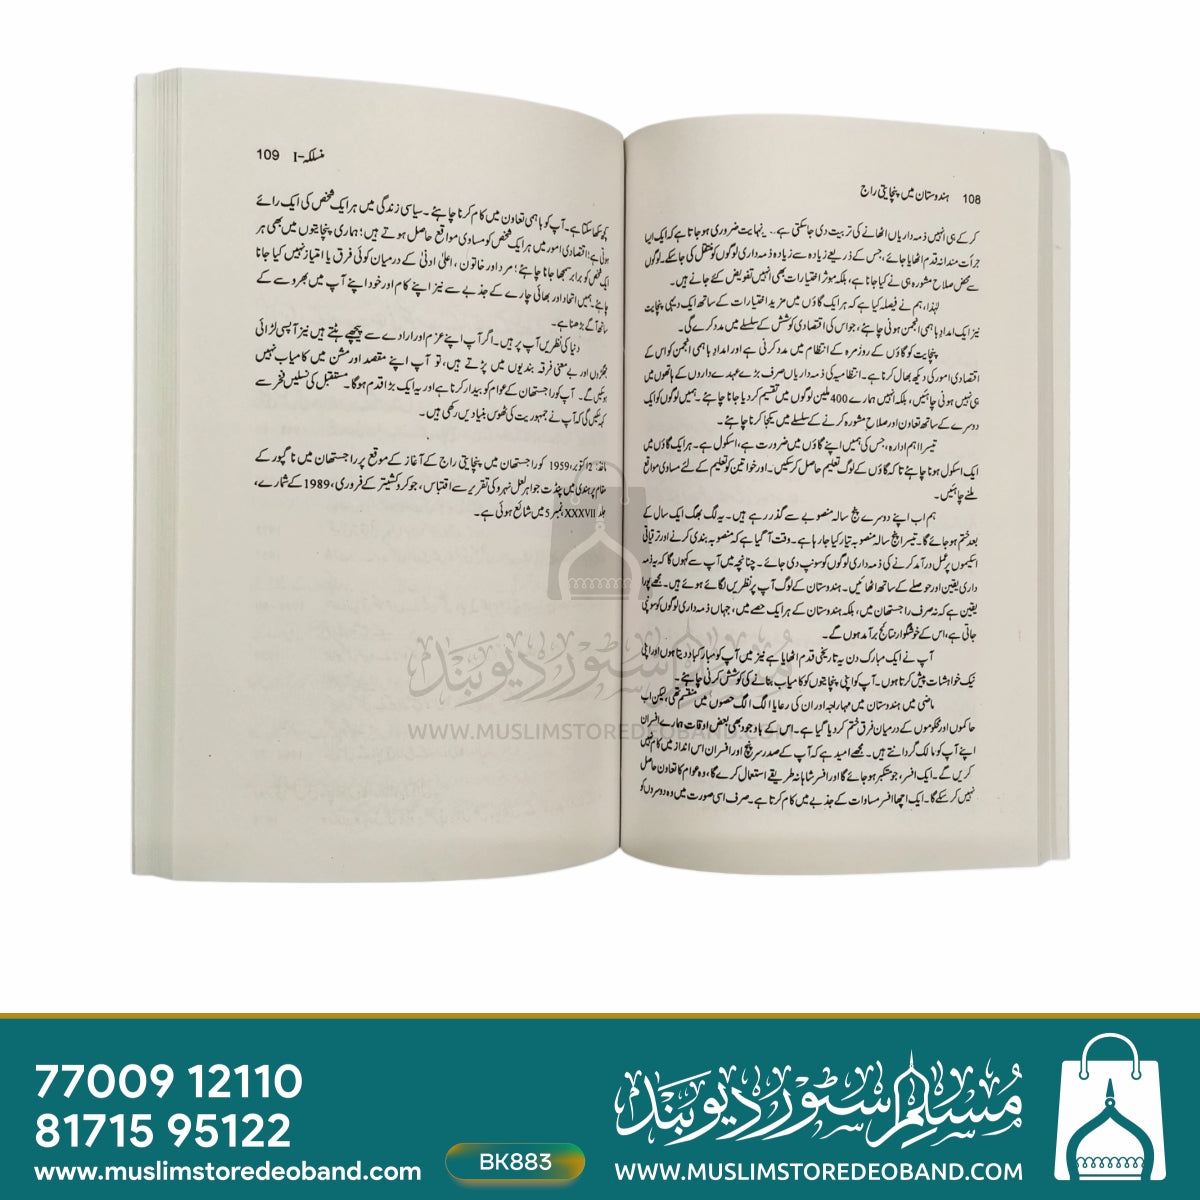 108 ہندوستان میں پنچایتی راج
کر کے ہی انہیں ذمہ داریاں اٹھانے کی تربیت دی جا سکتی ہے۔ یہ نہایت ضروری ہو جاتا ہے کہ ایک ایسا
جرأت مندانہ قدم اٹھایا جائے، جس کے ذریعے زیادہ سے زیادہ ذمہ داری لوگوں کو منتقل کی جا سکے۔ لوگوں
سے محض صلاح مشورہ ہی نے کیا جانا ہے، بلکہ موثر اختیارات بھی انہیں تفویض کئے جانے ہیں۔
لہٰذا، ہم نے فیصلہ کیا ہے کہ ہر ایک گاؤں میں مزید اختیارات کے ساتھ ایک دیہی پنچایت
نیز ایک امداد باہمی انجمن ہونی چاہئے، جو اس کی اقتصادی کوشش کے سلسلے میں مدد کرے گی۔
پنچایت کو گاؤں کے روزمرہ کے انتظام میں مدد کرنی ہے اور امداد باہمی انجمن کو اس کے
اقتصادی امور کی دیکھ بھال کرنا ہے۔ انتظامیہ کی ذمہ داریاں صرف بڑے عہدے داروں کے ہاتھوں میں
ہی نہیں ہونی چاہئیں، بلکہ انہیں ہمارے 400 ملین لوگوں میں تقسیم کر دیا جانا چاہئے۔ ہمیں لوگوں کو ایک
دوسرے کے ساتھ تعاون اور صلاح مشورہ کرنے کے سلسلے میں یکجا کرنا چاہئے۔
تیسرا اہم ادارہ، جس کی ہمیں اپنے گاؤں میں ضرورت ہے، اسکول ہے۔ ہر ایک گاؤں میں
ایک اسکول ہونا چاہئے تا کہ گاؤں کے لوگ تعلیم حاصل کر سکیں۔ اور خواتین کو تعلیم کے لئے مساوی مواقع
ملنے چاہئیں۔
ہم اب اپنے دوسرے پنج سالہ منصوبے سے گذر رہے ہیں۔ یہ لگ بھگ ایک سال کے
بعد ختم ہو جائے گا۔ تیسرا پنج سالہ منصوبہ تیار کیا جا رہا ہے۔ وقت آ گیا ہے کہ منصوبہ بندی کرنے اور ترقیاتی
اسکیموں پر عمل درآمد کرنے کی ذمہ داری لوگوں کو سونپ دی جائے۔ چنانچہ میں آپ سے کہوں گا کہ یہ ذمہ
داری یقین اور حوصلے کے ساتھ اٹھائیں۔ ہندوستان کے لوگ آپ پر نظریں لگائے ہوئے ہیں۔ مجھے پورا
یقین ہے کہ نہ صرف راجستھان میں، بلکہ ہندوستان کے ہر ایک حصے میں، جہاں ذمہ داری لوگوں کو سونپی
جاتی ہے، اس کے خوشگوار نتائج برآمد ہوں گے۔
آپ نے ایک مبارک دن یہ تاریخی قدم اٹھایا ہے نیز میں آپ کو مبارکباد دیتا ہوں اور اپنی
نیک خواہشات پیش کرتا ہوں۔ آپ کو اپنی پنچایتوں کو کامیاب بنانے کی کوشش کرنی چاہئے۔
ماضی میں ہندوستان میں مہاراجہ اور ان کی رعایا الگ الگ حصوں میں منقسم تھی، لیکن اب
حاکموں اور محکوموں کے درمیان فرق ختم کر دیا گیا ہے۔ اس کے باوجود بھی بعض اوقات ہمارے افسران
اپنے آپ کو مالک گردانتے ہیں۔ مجھے امید ہے کہ آپ کے صدر سرپنچ اور افسران اس انداز میں کام نہیں
کریں گے۔ ایک افسر، جو متکبر ہو جائے گا اور افسر شاہانہ طریقے استعمال کرے گا، وہ عوام کا تعاون حاصل
نہیں کر سکے گا۔ ایک اچھا افسر مساوات کے جذبے میں کام کرتا ہے۔ صرف اسی صورت میں وہ دوسروں کو
منسلکہ-I 109
کچھ سکھا سکتا ہے۔ آپ کو باہمی تعاون میں کام کرنا چاہئے۔ سیاسی زندگی میں ہر ایک شخص کی ایک رائے
ہوتی ہے؛ اقتصادی امور میں ہر ایک شخص کو مساوی مواقع حاصل ہوتے ہیں؛ ہماری پنچایتوں میں بھی ہر
ایک شخص کو برابر سمجھا جانا چاہئے؛ مرد اور خاتون، اعلیٰ ادنیٰ کے درمیان کوئی فرق یا امتیاز نہیں کیا جانا
چاہئے۔ ہمیں اتحاد اور بھائی چارے کے جذبے سے نیز اپنے کام اور خود اپنے آپ میں بھروسے کے
ساتھ آگے بڑھنا ہے۔
دنیا کی نظریں آپ پر ہیں۔ اگر آپ اپنے عزم اور ارادے سے پیچھے ہٹتے ہیں نیز آپسی لڑائی
جھگڑوں اور بے معنی فرقہ بندیوں میں پڑتے ہیں، تو آپ اپنے مقصد اور مشن میں کامیاب نہیں
ہو سکیں گے۔ آپ کو راجستھان کے عوام کو بیدار کرنا ہے اور یہ ایک بڑا قدم ہوگا۔ مستقبل کی نسلیں فخر سے
کہہ سکیں گی کہ آپ نے جمہوریت کی ٹھوس بنیادیں رکھی ہیں۔
ماخذ: 2 اکتوبر، 1959 کو راجستھان میں پنچایتی راج کے آغاز کے موقع پر راجستھان میں ناگپور کے
مقام پر ہندی میں پنڈت جواہر لعل نہرو کی تقریر سے اقتباس، جو کروکشیتر کے فروری، 1989 کے شمارے،
جلد XXXVII، نمبر 5 میں شائع ہوئی ہے۔
مسلم سٹور دیوبند
WWW.MUSLIMSTOREDEOBAND.COM
77009 12110
81715 95122
www.muslimstoredeoband.com
BK883
مسلم سٹور دیوبند
WWW.MUSLIMSTOREDEOBAND.COM